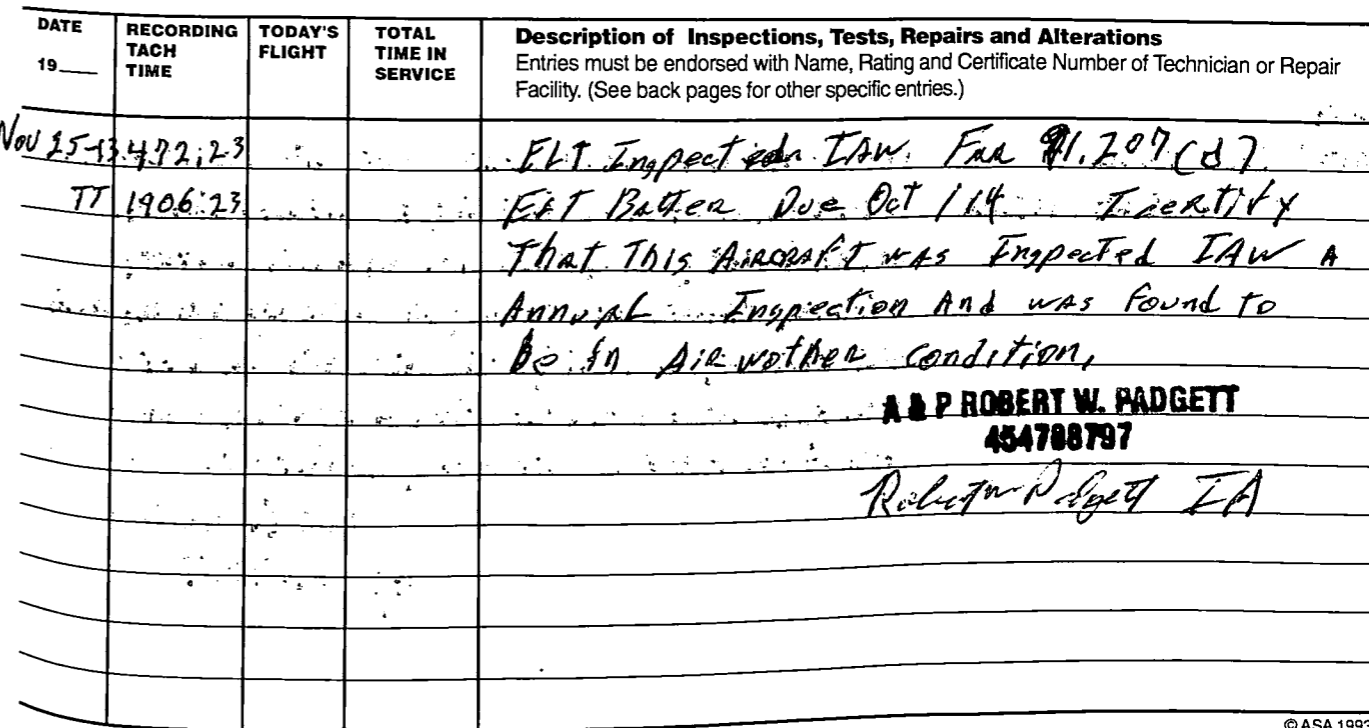 DATE RECORDING TODAY'S TOTAL Description of Inspections, Tests, Repairs and Alterations
19___ TACH FLIGHT TIME IN Entries must be endorsed with Name, Rating and Certificate Number of Technician or Repair
TIME SERVICE Facility. (See back pages for other specific entries.)
Nov 25-13 472.23 ELT Inspected IAW FAR 91.207 (d)
TT 1906.23 ELT Batter Due Oct / 14 I certify
That This Aircraft was Inspected IAW A
Annual Inspection And was found to
be in Airwother condition,
A & P ROBERT W. PADGETT
454788797
Robert W Padgett IA
© ASA 1993